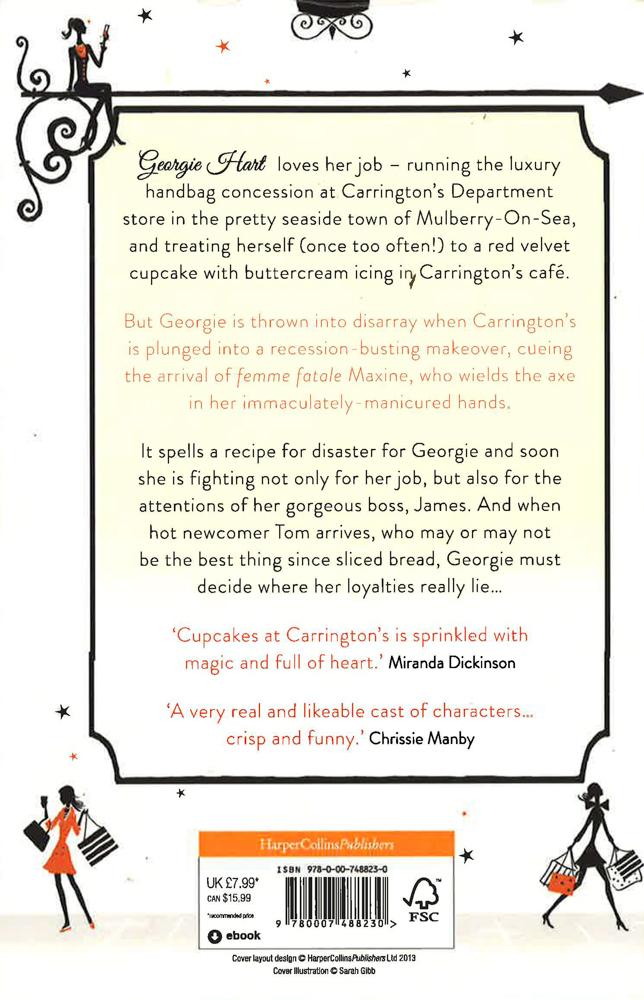 Georgie Hart loves her job – running the luxury
handbag concession at Carrington's Department
store in the pretty seaside town of Mulberry-On-Sea,
and treating herself (once too often!) to a red velvet
cupcake with buttercream icing in Carrington's café.
But Georgie is thrown into disarray when Carrington's
is plunged into a recession-busting makeover, cueing
the arrival of femme fatale Maxine, who wields the axe
in her immaculately-manicured hands.
It spells a recipe for disaster for Georgie and soon
she is fighting not only for her job, but also for the
attentions of her gorgeous boss, James. And when
hot newcomer Tom arrives, who may or may not
be the best thing since sliced bread, Georgie must
decide where her loyalties really lie...
'Cupcakes at Carrington's is sprinkled with
magic and full of heart.' Miranda Dickinson
'A very real and likeable cast of characters...
crisp and funny.' Chrissie Manby
HarperCollinsPublishers
ISBN 978-0-00-748823-0
UK £7.99*
CAN $15.99
*recommended price
ebook
9 780007 488230 >
FSC
™
Cover layout design © HarperCollinsPublishers Ltd 2013
Cover illustration © Sarah Gibb